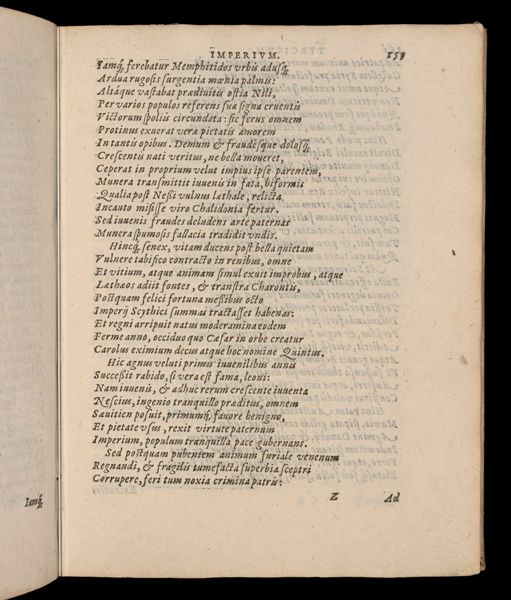 IMPERIVM. 159
Iamq́, ferebatur Memphitidos vrbis adusq́,
Ardua rugosis surgentia mœnia palmis:
Altáque vastabat prædiuitis ostia Nili,
Per varios populos referens sua signa cruentis
Victorum spoliis circundata: sic ferus omnem
Protinus exuerat vera pietatis amorem
In tantis opibus. Demum & fraudésque dolosq́,
Crescentis nati veritus, ne bella moueret,
Ceperat in proprium velut impius ipse parentem,
Munera transmittit iuueni in fata, biformis
Qualia post Nessi vulnus læthale, relicta
Incauto misisse viro Chalidonia fertur.
Sed iuuenis fraudes deludens arte paternas
Munera spumosis fallacia tradidit vndis.
Hincq́, senex, vitam ducens post bella quietam
Vulnere tabifico contracto in renibus, omne
Et vitium, atque animam simul exuit improbus, atque
Læthæos adiit fontes, & transtra Charontis,
Postquam felici fortuna messibus octo
Imperij Scythici summai tractasset habenas:
Et regni arripuit natus moderamina eodem
Ferme anno, occiduo quo Cæsar in orbe creatur
Carolus eximium decus atque hoc nomine Quintus.
Hic agnus veluti primis iuuenilibus annis
Successit rabido, si vera est fama, leoni:
Nam iuuenis, & adhuc rerum crescente iuuenta
Nescius, ingenio tranquillo præditus, omnem
Sæuitien posuit, primumq́, fauore benigno,
Et pietate vsus, rexit virtute paternum
Imperium, populum tranquilla pace gubernans.
Sed postquam pubentem animum furiale venenum
Regnandi, & fragilis tumefacta superbia sceptri
Corrupere, feri tum noxia crimina patris:
Z Ad
Iamq́,